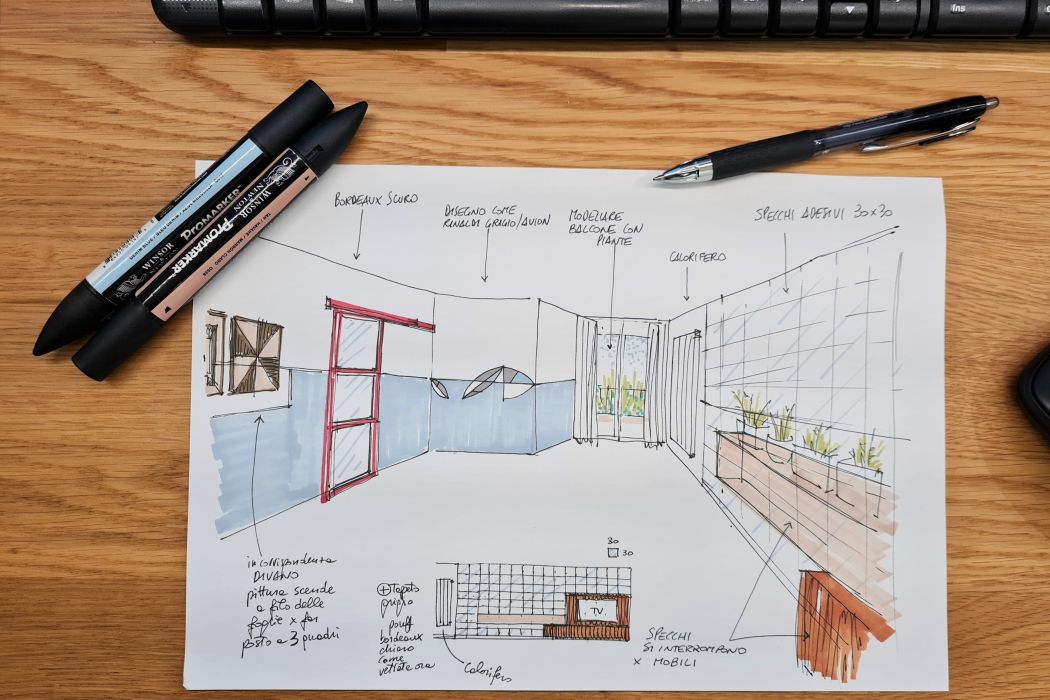 Ins
PROMARKER™
WINSOR
NEWTON
PROMARKER™
WINSOR
NEWTON
BORDEAUX SCURO
DISEGNO COME
RINALDI GRIGIO/AVION
MODELLARE
BALCONE CON
PIANTE
CALORIFERO
SPECCHI ADESIVI 30x30
in corrispondenza
DIVANO
pittura scende
a filo delle
foglie x far
posto a 3 quadri
⊕ Tappeto
grigio
pouff
bordeaux
chiaro
come
vetrata ora
30
30
TV
Calorifero
SPECCHI
SI INTERROMPONO
x MOBILI